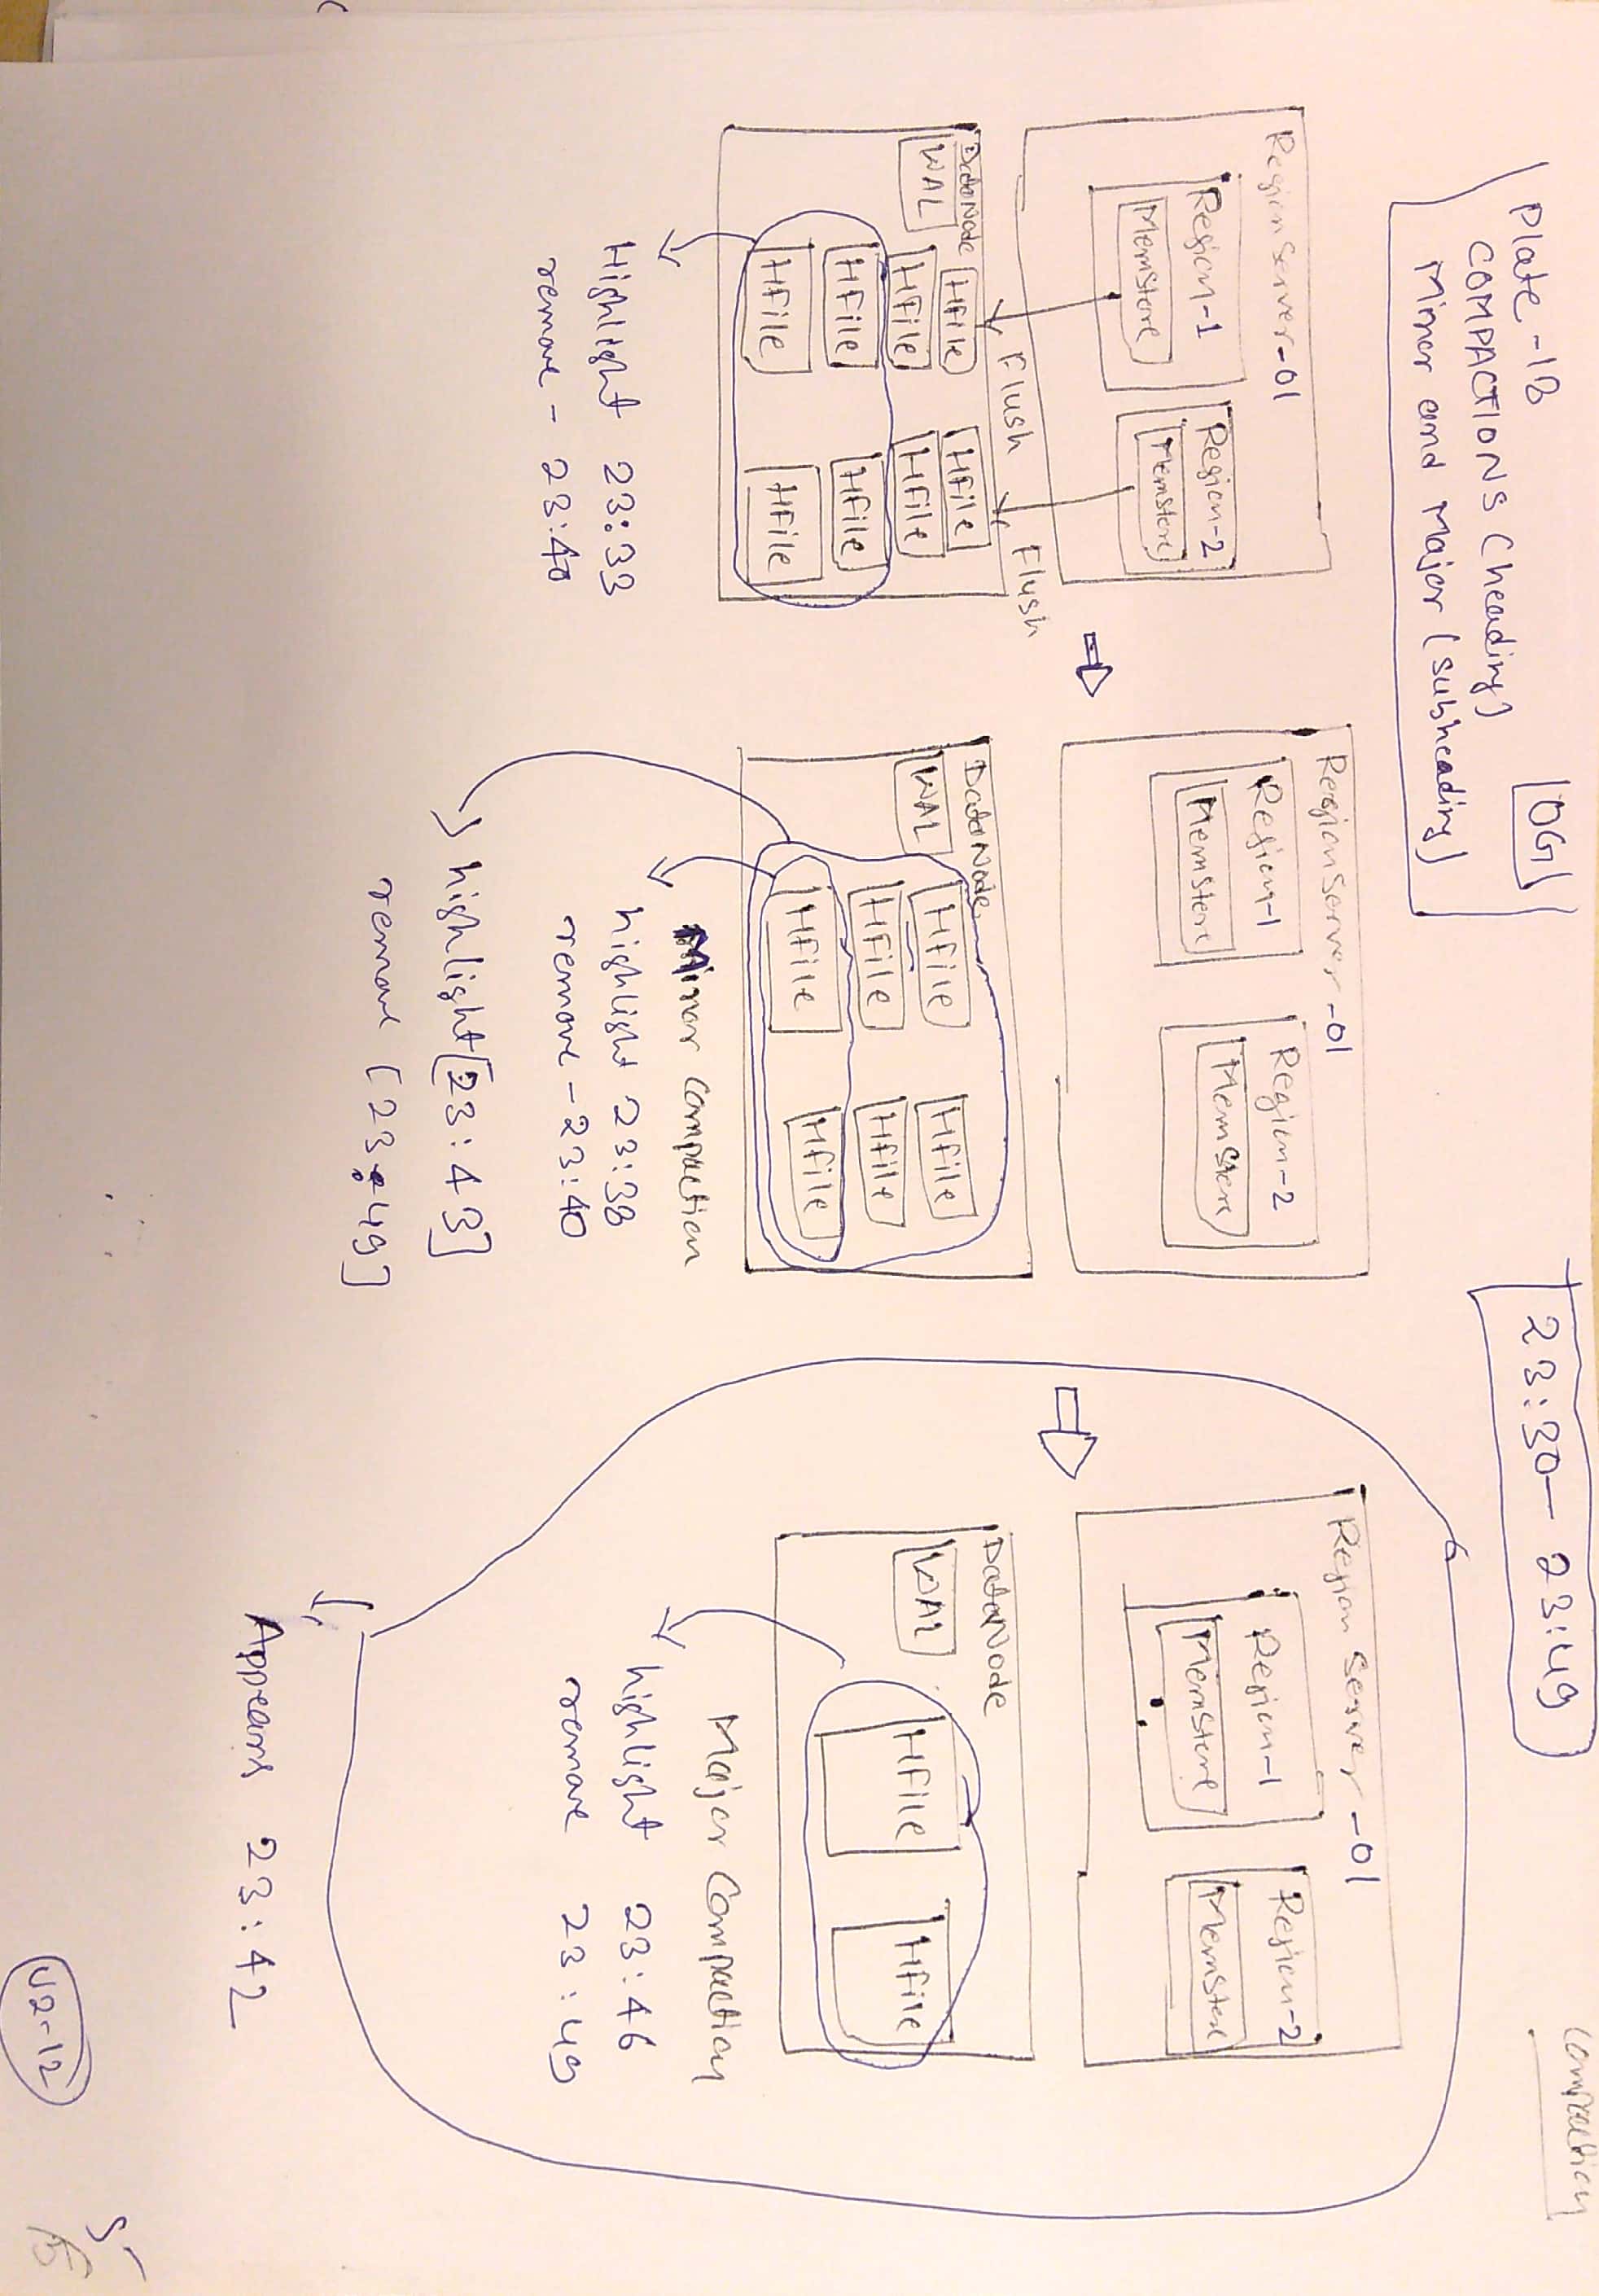 Compaction
Plate -1B
OG
COMPACTIONS (heading)
Minor and Major (subheading)
23:30 - 23:49
Region Server-01
Region-1
MemStore
Region-2
MemStore
Flush
Flush
DataNode
WAL
HFile
HFile
HFile
HFile
HFile
HFile
HFile
HFile
Highlight 23:33
remove - 23:40
Region Server -01
Region-1
MemStore
Region-2
MemStore
DataNode
WAL
HFile
HFile
HFile
HFile
HFile
HFile
Minor Compaction
highlight 23:38
remove - 23:40
highlight [23:43]
remove [23:49]
Region Server -01
Region-1
MemStore
Region-2
MemStore
DataNode
WAL
HFile
HFile
Major Compaction
highlight 23:46
remove 23:49
Appears 23:42
5
V2-12